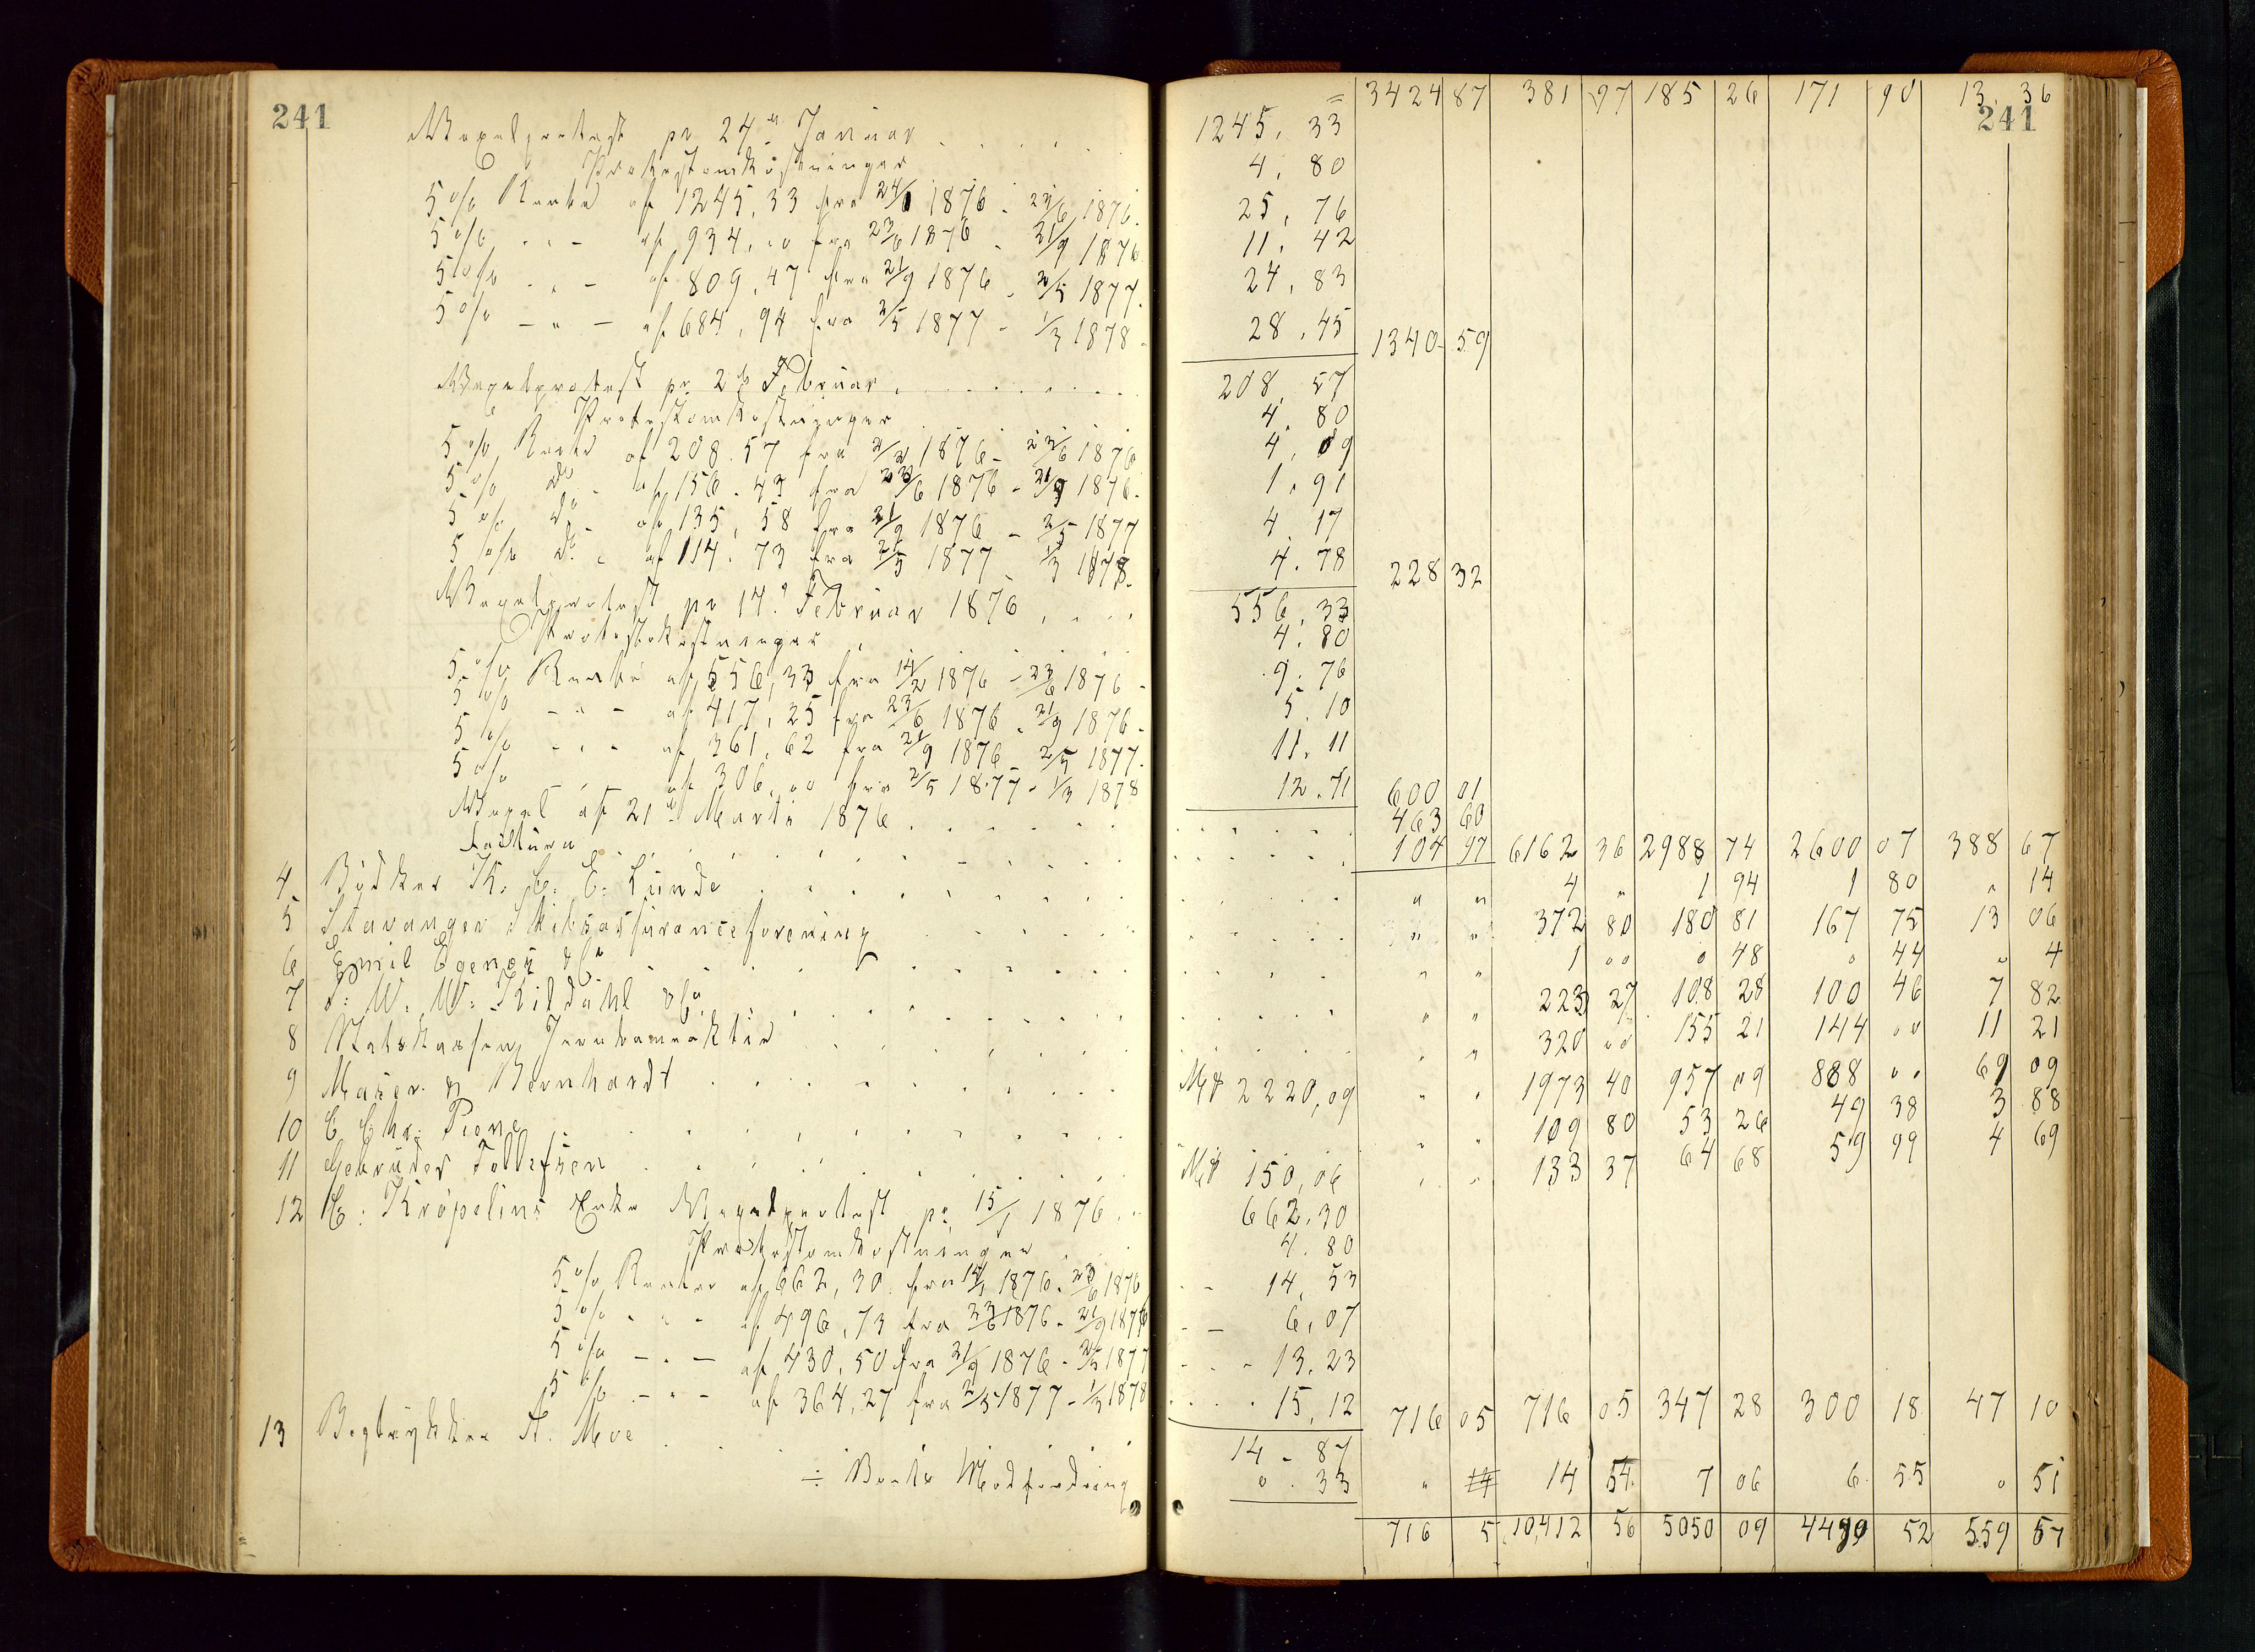 241
= 3424 87 381 97 185 26 171 90 13. 36
241
Vexelprotest pr 24de Januar . . . . . 1245, 33
Protestomkostninger 4, 80
5 % Rente af 1245, 33 fra 24/1 1876 - 23/6 1876. 25, 76
5 % - " - af 934, 00 fra 23/6 1876 - 21/9 1876 11. 42
5 % - " - af 809, 47 fra 21/9 1876 - 2/5 1877. 24, 83
5 % - " - af 684, 94 fra 2/5 1877 - 1/3 1878. 28, 45 1340 59
Vexelprotest pr 2de Februar . . . . . 208, 57
Protestomkostninger 4. 80
5 % Rente af 208. 57 fra 2/2 1876 - 23/6 1876 4, 09
5 % do - af 156. 43 fra 23/6 1876 - 21/9 1876. 1. 91
5 % do - af 135, 58 fra 21/9 1876 - 2/5 1877 4. 17
5 % do - af 114. 73 fra 2/5 1877 1/3 1878. 4. 78 228 32
Vexelprotest pr 14de Februar 1876 . . . . 556, 33
Protestomkostninger 4. 80
5 % Rente af 556, 33 fra 14/2 1876 - 23/6 1876 - 9. 76
5 % - " - af 417, 25 fra 23/6 1876 - 21/9 1876. 5. 10
5 % - " - af 361, 62 fra 21/9 1876 2/5 1877. 11. 11
5 % af 306, 00 fra 2/5 1877 - 1/3 1878 12. 71 600 01
Vexel af 21de Marts 1876 . . . . . 463 60
Factura . . . . . 104 97 6162 36 2988 74 2600 07 388 67
4 Bødker K. C. E. Lunde . . . . . " " 4 " 1 94 1 80 " 14
5 Stavanger Skibsassuranceforening . . . . . " " 372 80 180 81 167 75 13 06
6 Emil Egenes & Co . . . . . " " 1 00 0 48 0 44 0 4
7 T. W. W. Kildahl & Co . . . . . " " 223 27 108 28 100 46 7 82
8 Statskassen, Jernbaneaktie . . . . . " " 320 00 155 21 144 00 11 21
9 Maier & Bernhardt . . . . . Mk 2220,09 " " 1973 40 957 09 888 00 69 09
10 C Chr: Piene . . . . . " " 109 80 53 26 49 38 3 88
11 Gebrüder Tollefsen . . . . . Mk 150,06 " " 133 37 64 68 59 99 4 69
12 C: Kröpelins Enke Vexelprotest pr 15/1 1876 . . 662.30
Protestomkostninger 4. 80
5 % Renter af 662, 30 fra 15/1 1876 - 23/6 1876 - - 14, 53
5 % - " - af 496, 73 fra 23/6 1876 - 21/9 1876 - - 6, 07
5 % - " - af 430, 50 fra 21/9 1876 - 2/5 1877 - - - 13. 23
5 % - " - af 364, 27 fra 2/5 1877 - 1/3 1878 . . . . 15, 12 716 05 716 05 347 28 300 18 47 10
13 Bogtrykker A. Moe . . . . . 14 - 87
÷ Boets Modfordring 0. 33 " 14 54 7 06 6 55 0 51
716 5 10,412 56 5050 09 52 559 57